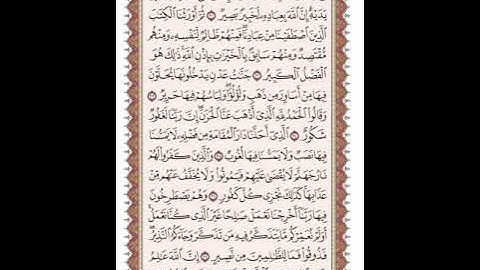 يَدَيْهِ إِنَّ ٱللَّهَ بِعِبَادِهِۦ لَخَبِيرٌۢ بَصِيرٌ ۝ ثُمَّ أَوْرَثْنَا ٱلْكِتَٰبَ
ٱلَّذِينَ ٱصْطَفَيْنَا مِنْ عِبَادِنَا فَمِنْهُمْ ظَالِمٌ لِّنَفْسِهِۦ وَمِنْهُم
مُّقْتَصِدٌ وَمِنْهُمْ سَابِقٌۢ بِٱلْخَيْرَٰتِ بِإِذْنِ ٱللَّهِ ذَٰلِكَ هُوَ
ٱلْفَضْلُ ٱلْكَبِيرُ ۝ جَنَّٰتُ عَدْنٍ يَدْخُلُونَهَا يُحَلَّوْنَ
فِيهَا مِنْ أَسَاوِرَ مِن ذَهَبٍ وَلُؤْلُؤًا وَلِبَاسُهُمْ فِيهَا حَرِيرٌ ۝
وَقَالُوا۟ ٱلْحَمْدُ لِلَّهِ ٱلَّذِىٓ أَذْهَبَ عَنَّا ٱلْحَزَنَ إِنَّ رَبَّنَا لَغَفُورٌ
شَكُورٌ ۝ ٱلَّذِىٓ أَحَلَّنَا دَارَ ٱلْمُقَامَةِ مِن فَضْلِهِۦ لَا يَمَسُّنَا
فِيهَا نَصَبٌ وَلَا يَمَسُّنَا فِيهَا لُغُوبٌ ۝ وَٱلَّذِينَ كَفَرُوا۟ لَهُمْ
نَارُ جَهَنَّمَ لَا يُقْضَىٰ عَلَيْهِمْ فَيَمُوتُوا۟ وَلَا يُخَفَّفُ عَنْهُم مِّنْ
عَذَابِهَا كَذَٰلِكَ نَجْزِى كُلَّ كَفُورٍ ۝ وَهُمْ يَصْطَرِخُونَ
فِيهَا رَبَّنَآ أَخْرِجْنَا نَعْمَلْ صَٰلِحًا غَيْرَ ٱلَّذِى كُنَّا نَعْمَلُ
أَوَلَمْ نُعَمِّرْكُم مَّا يَتَذَكَّرُ فِيهِ مَن تَذَكَّرَ وَجَآءَكُمُ ٱلنَّذِيرُ
فَذُوقُوا۟ فَمَا لِلظَّٰلِمِينَ مِن نَّصِيرٍ ۝ إِنَّ ٱللَّهَ عَٰلِمُ